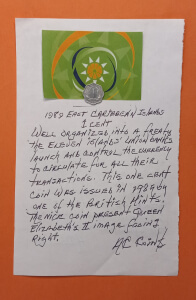 1989 EAST CARIBBEAN ISLANDS
1 CENT
WELL ORGANIZED INTO A TREATY
THE ELEVEN ISLANDS' UNION BANKS
LAUNCH AND CONTROL THE CURRENCY
TO CIRCULATE FOR ALL THEIR
TRANSACTIONS. THIS ONE CENT
COIN WAS ISSUED IN 1989 BY
ONE OF THE BRITISH MINTS.
THE NICE COIN PRESENT QUEEN
ELIZABETH'S II IMAGE FACING
RIGHT.